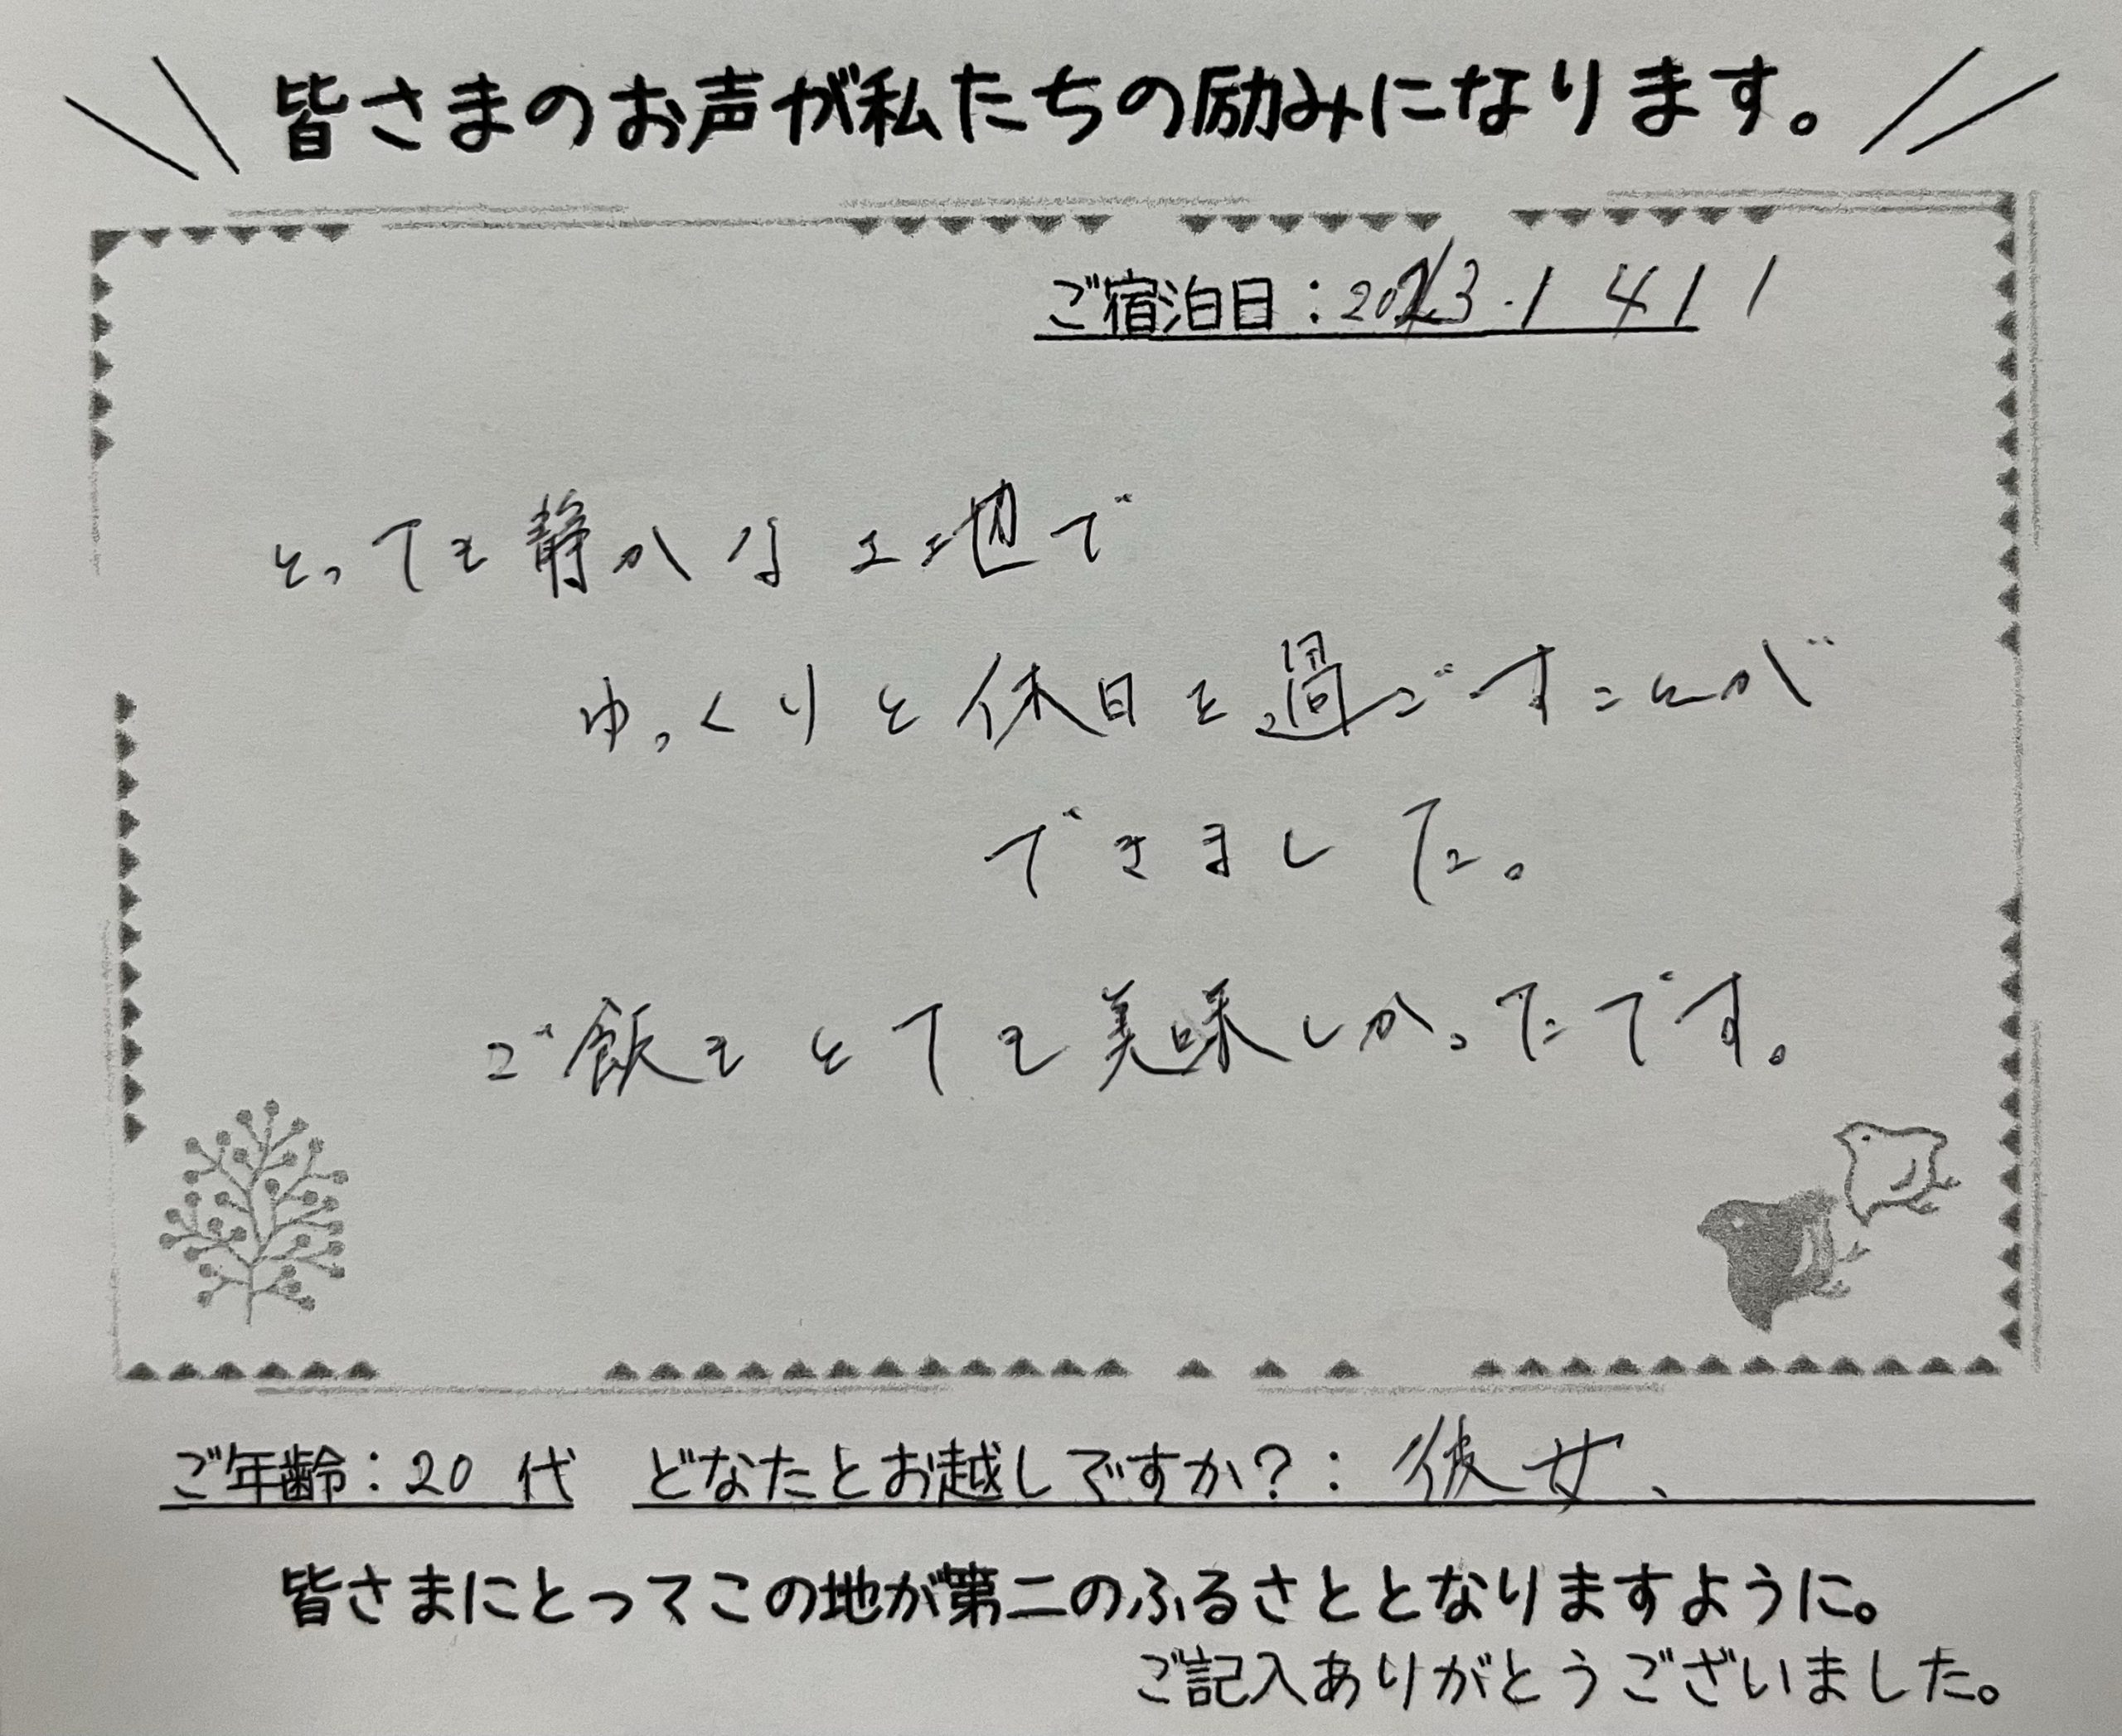 皆さまのお声が私たちの励みになります。
ご宿泊日：2023.1 4 1 1
とっても静かな土地で
ゆっくりと休日を過ごすことが
できました。
ご飯もとても美味しかったです。
ご年齢：20代 どなたとお越しですか？：彼女、
皆さまにとってこの地が第二のふるさととなりますように。
ご記入ありがとうございました。